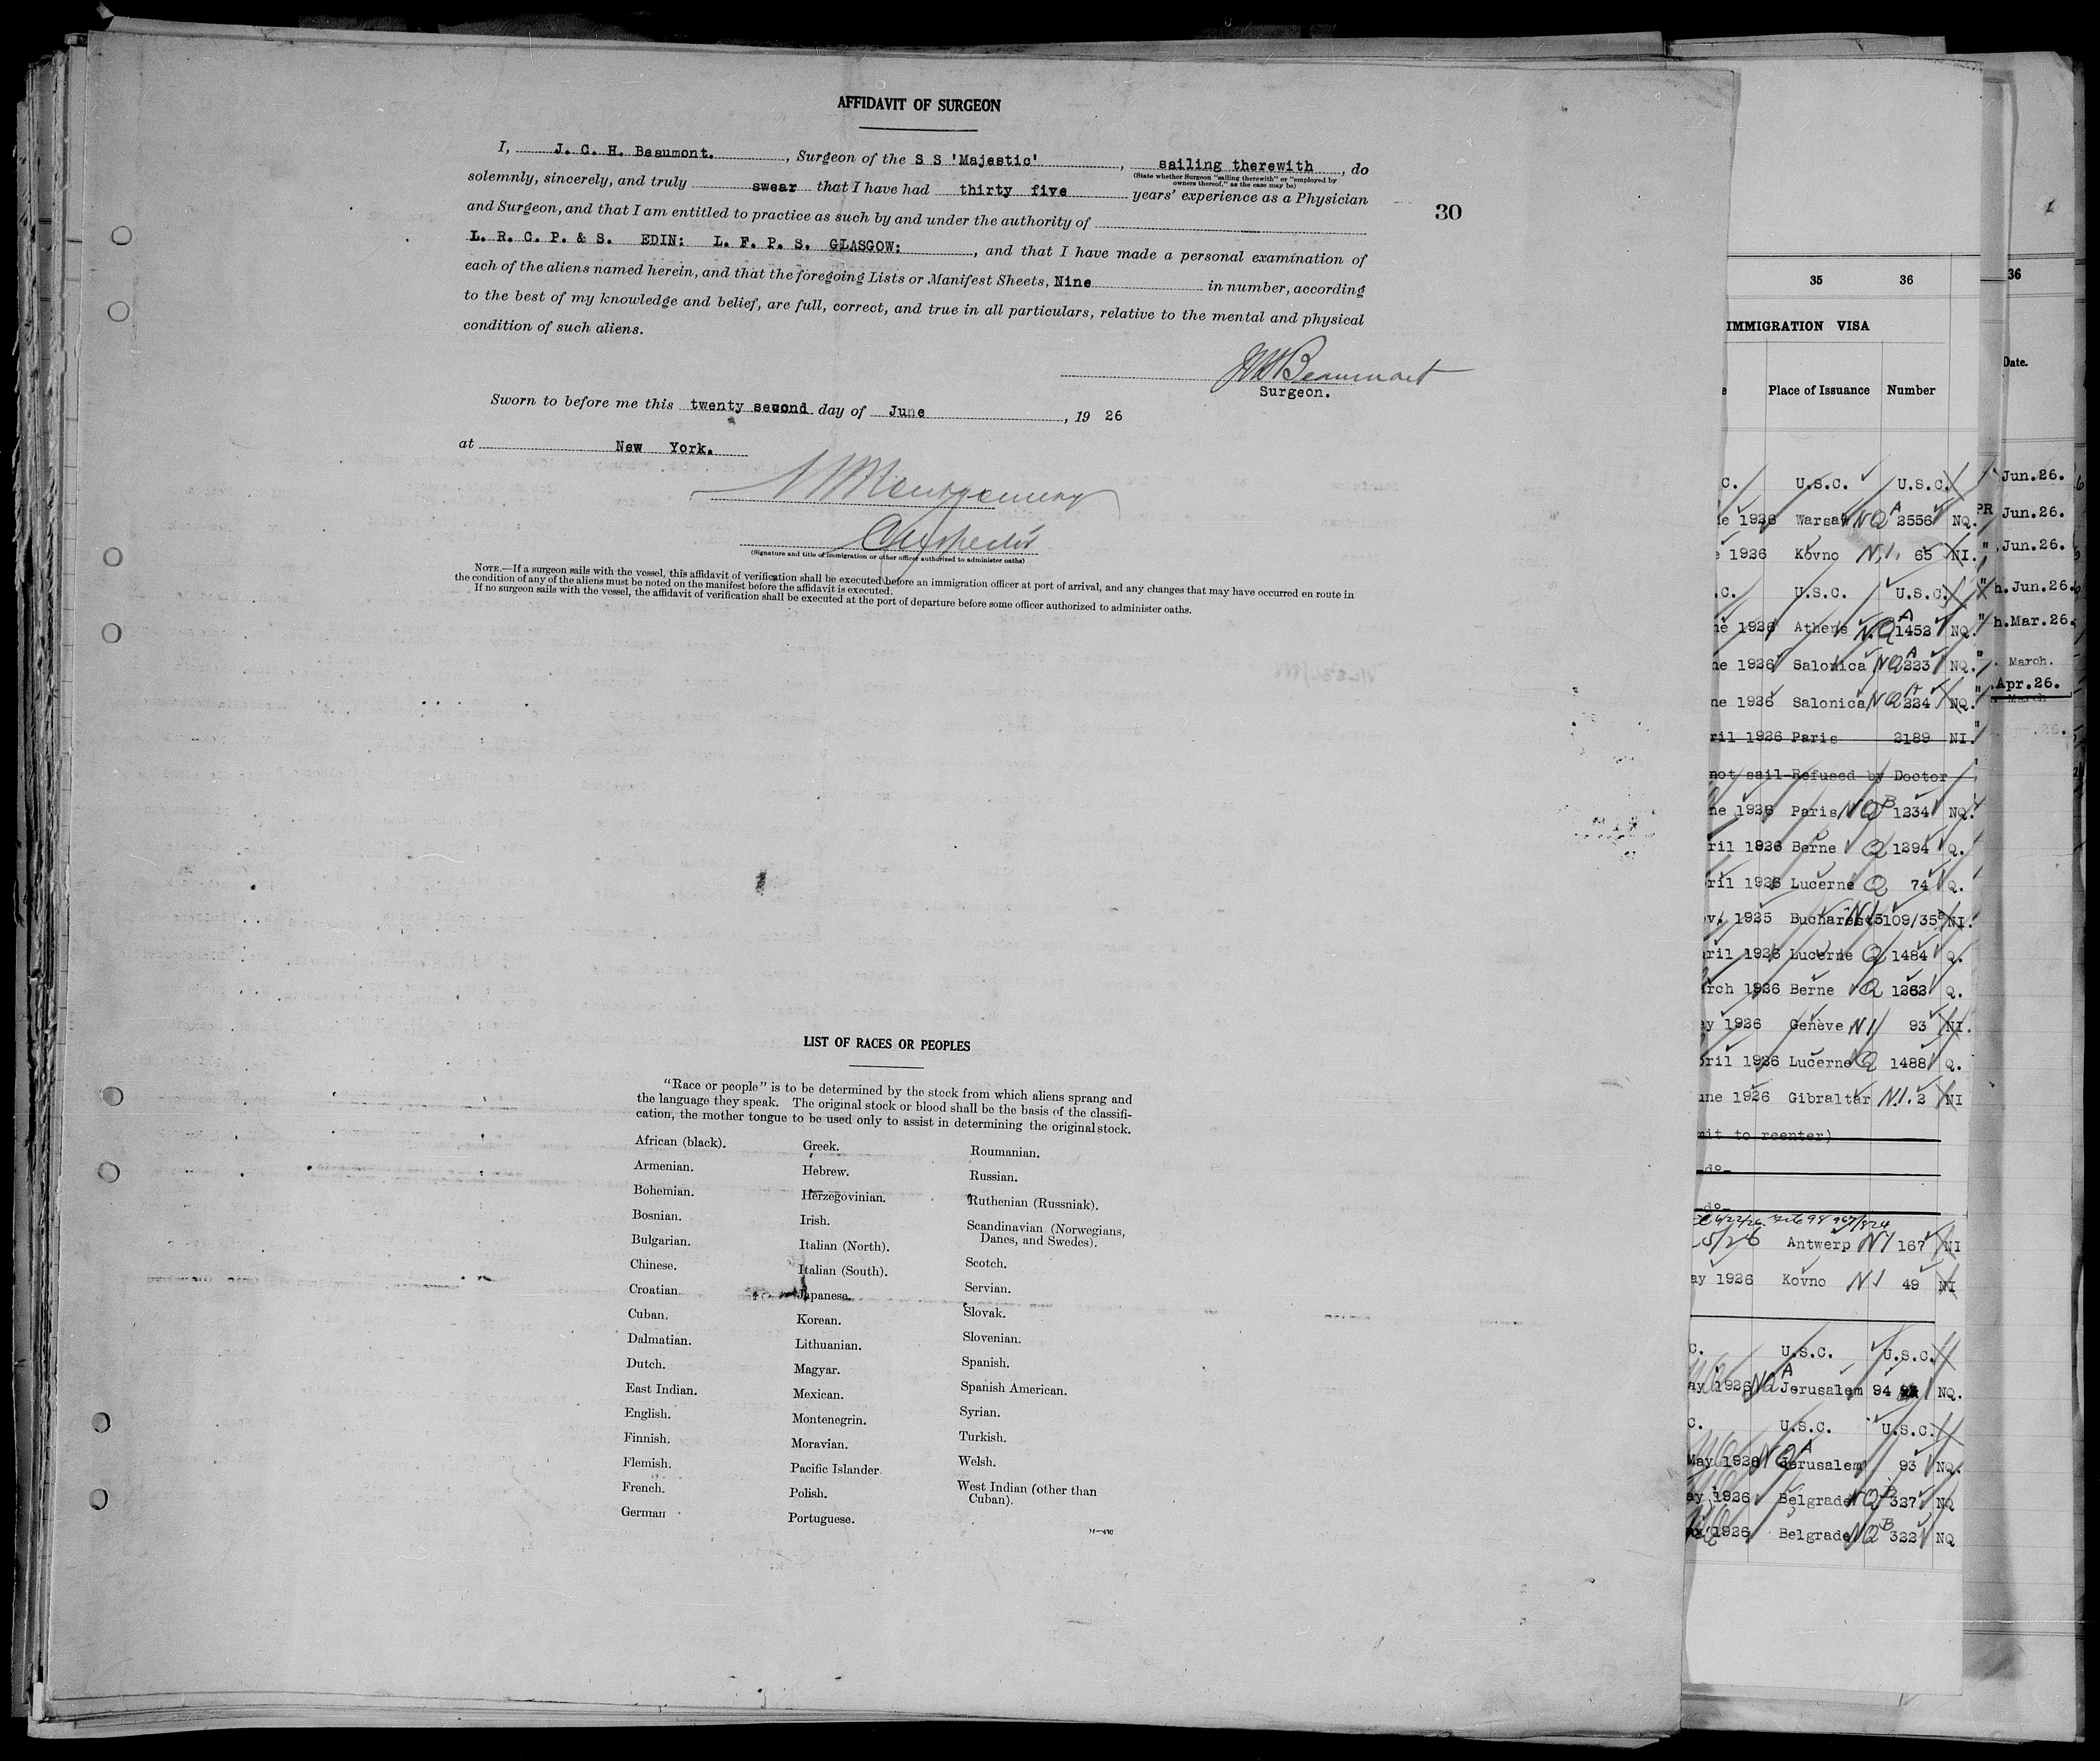 AFFIDAVIT OF SURGEON
I, J. C. H. Beaumont. , Surgeon of the S S 'Majestic' , sailing therewith , do
(State whether Surgeon "sailing therewith" or "employed by
owners thereof," as the case may be)
solemnly, sincerely, and truly swear that I have had thirty five years' experience as a Physician
and Surgeon, and that I am entitled to practice as such by and under the authority of
L. R. C. P. & S. EDIN: L. F. P. S. GLASGOW: , and that I have made a personal examination of
each of the aliens named herein, and that the foregoing Lists or Manifest Sheets, Nine in number, according
to the best of my knowledge and belief, are full, correct, and true in all particulars, relative to the mental and physical
condition of such aliens.
30
Beaumont
Surgeon.
Sworn to before me this twenty second day of June , 19 26
at New York.
Montgomery
Inspector
(Signature and title of immigration or other officer authorized to administer oaths)
NOTE.—If a surgeon sails with the vessel, this affidavit of verification shall be executed before an immigration officer at port of arrival, and any changes that may have occurred en route in
the condition of any of the aliens must be noted on the manifest before the affidavit is executed.
If no surgeon sails with the vessel, the affidavit of verification shall be executed at the port of departure before some officer authorized to administer oaths.
LIST OF RACES OR PEOPLES
"Race or people" is to be determined by the stock from which aliens sprang and
the language they speak. The original stock or blood shall be the basis of the classifi-
cation, the mother tongue to be used only to assist in determining the original stock.
African (black).
Armenian.
Bohemian.
Bosnian.
Bulgarian.
Chinese.
Croatian
Cuban.
Dalmatian.
Dutch.
East Indian.
English.
Finnish.
Flemish.
French.
German
Greek.
Hebrew.
Herzegovinian.
Irish.
Italian (North).
Italian (South).
Japanese.
Korean.
Lithuanian.
Magyar.
Mexican.
Montenegrin.
Moravian.
Pacific Islander
Polish.
Portuguese.
Roumanian.
Russian.
Ruthenian (Russniak).
Scandinavian (Norwegians,
Danes, and Swedes).
Scotch.
Servian.
Slovak.
Slovenian.
Spanish.
Spanish American.
Syrian.
Turkish.
Welsh.
West Indian (other than
Cuban).
35 36
IMMIGRATION VISA
Place of Issuance Number
C. U.S.C. U.S.C.
ne 1926 Warsaw NQ A 2556 NQ.
e 1926 Kovno N.I. 65 NI.
.C. U.S.C. U.S.C.
ne 1926 Athens N.Q A 1452 NQ.
ne 1926 Salonica NQ A 223 NQ.
ne 1926 Salonica NQ A 224 NQ.
ril 1926 Paris 2189 NI.
not sail-Refused by Doctor
ne 1926 Paris NQ B 1234 NQ.
ril 1926 Berne Q 1294 Q.
ril 1926 Lucerne Q 74 Q.
v. 1925 Bucharest NI 5109/35 NI.
ril 1926 Lucerne Q 1484 Q.
rch 1926 Berne Q 1262 Q.
ay 1926 Genève NI 93 NI.
ril 1926 Lucerne Q 1488 Q.
une 1926 Gibraltar N.I. 2 NI
mit to reenter)
-do-
-do-
5/26 Antwerp NI 167 NI
ay 1926 Kovno NI 49 NI
C. U.S.C. U.S.C.
ay 1926 NQ A Jerusalem 94 NQ.
C. U.S.C. U.S.C.
May 1926 NQ A Jerusalem 93 NQ.
ay 1926 Belgrade NQ B 327 NQ
ay 1926 Belgrade NQ B 322 NQ
36
Date.
Jun.26.
PR Jun.26.
" Jun.26.
" h.Jun.26.
" h.Mar.26.
" March.
" Apr.26.
March
26.